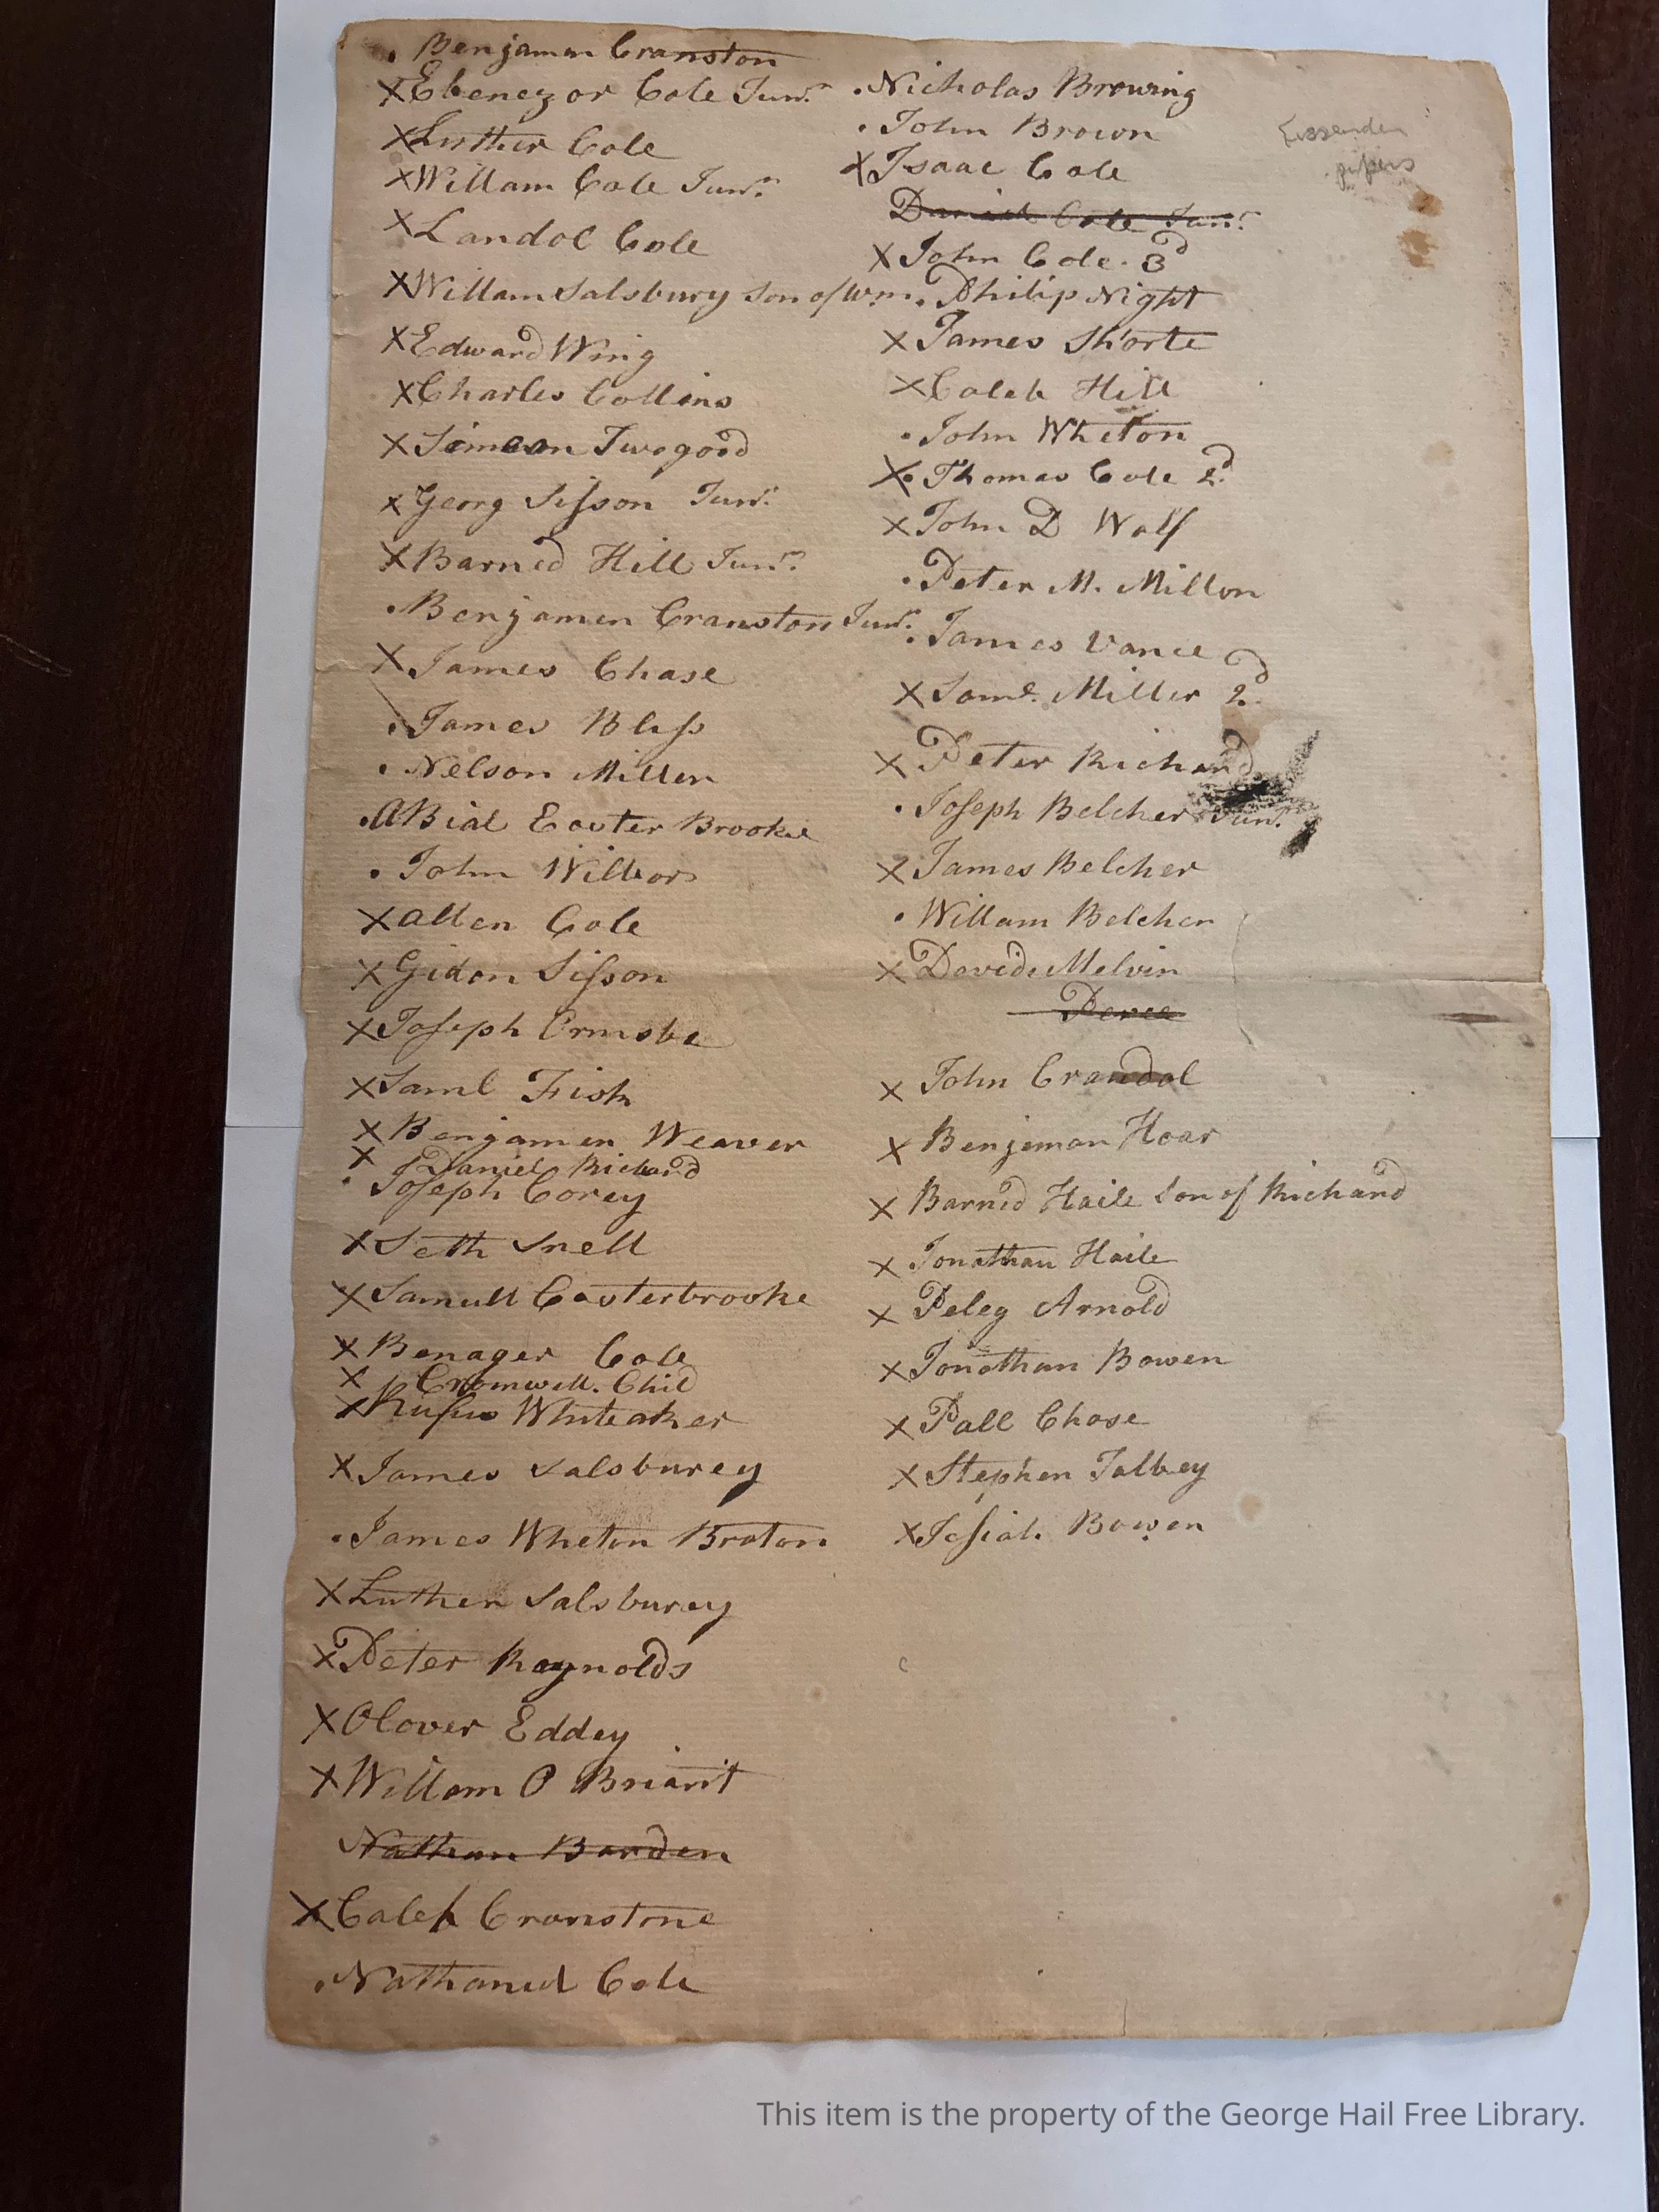 . Benjamen Cranston
X Ebenezor Cole Junr.
X Luther Cole
X Willam Cole Junr.
X Landol Cole
X Willam Salsbury Son of Wm.
X Edward Wing
X Charles Collins
X Simeon Twogood
X Georg Sisson Junr.
X Barned Hill Junr.
. Benjamen Cranston Junr.
X James Chase
. James Bliss
. Nelson Miller
. ABial Easter Brooke
. John Wilbor
X Allen Cole
X Gidon Sisson
X Joseph Ormsbe
X Saml Fish
X Benjamen Weaver
X Daniel Richard
. Joseph Corey
X Seth Snell
X Samuell Easterbrooke
X Benager Cole
X Cromwell. Child
X Rufus Whiteaker
X James Salsburey
. James Wheton Braton
X Luther Salsburey
X Peter Raynolds
X Olover Eddey
X Willam O Briant
Nathan Barden
X Caleb Cranstone
. Nathaniel Cole
. Nicholas Browing
. John Brown
X Isaac Cole
Daniel Cole Junr.
X John Cole. 3d
. Philip Night
X James Shorte
X Caleb Hill
. John Wheton
X. Thomas Cole 2d.
X John D Wolf
. Peter M. Millon
. James Vance
X Saml. Miller 2d.
X Peter Richard
. Joseph Belcher Junr.
X James Belcher
. Willam Belcher
X David Melvin
Perce
X John Crandal
X Benjeman Hoar
X Barned Haile Son of Richard
X Jonathan Haile
X Peleg Arnold
X Jonathan Bowen
X Pall Chase
X Stephen Talbey
X Josiah. Bowen
papers
This item is the property of the George Hail Free Library.